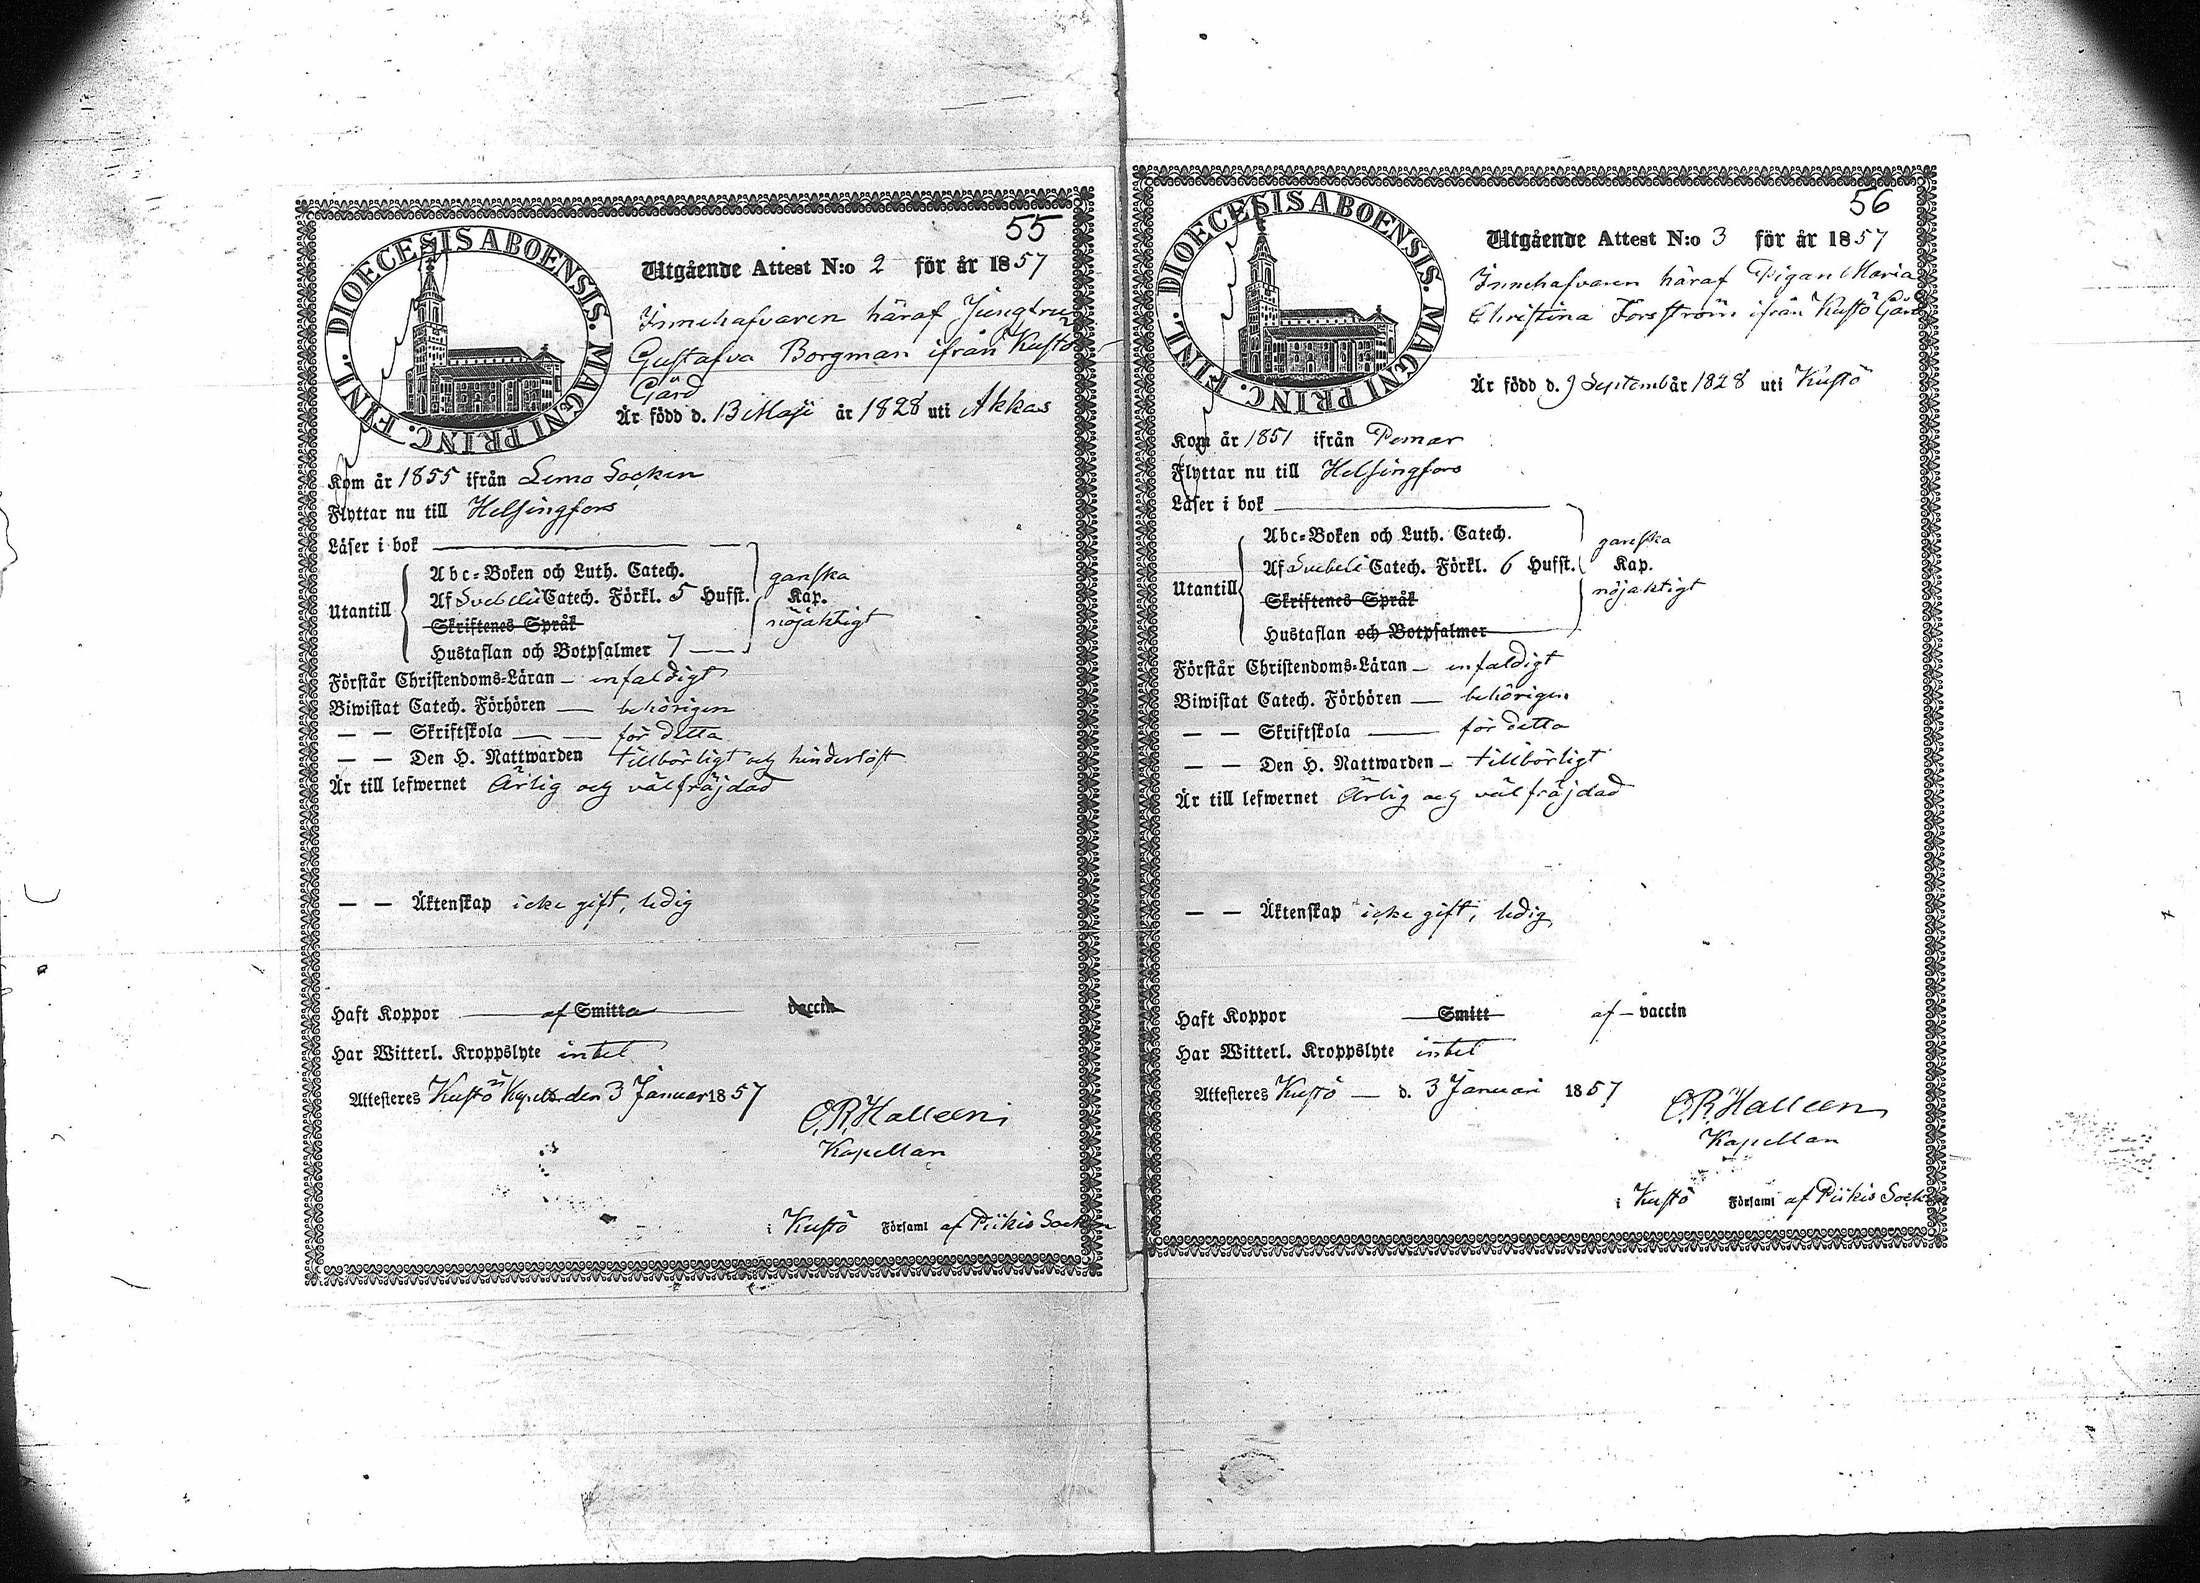 55
DIOECESIS ABOENSIS. MAGNI PRINC. FINL.
Utgående Attest N:o 2 för år 1857
Innehafvaren häraf Jungfrun
Gustafva Borgman ifrån Kustö
Gård
Är född d. 13 Maji år 1828 uti Akkas
Kom år 1855 ifrån Lemo Socken
Flyttar nu till Helsingfors
Läser i bok
Abc-Boken och Luth. Catech. ganska
Utantill Af Svebelii Catech. Förkl. 5 Hufst. Kap.
Skriftenes Språk nöjaktigt
Hustaflan och Botpsalmer 7
Förstår Christendoms-Läran – enfaldigt
Biwistat Catech. Förhören — behörigen
— — Skriftskola — — för detta
— — Den H. Nattwarden tillbörligt och hinderlöst
Är till lefwernet Ärlig och välfräjdad
— — Äktenskap icke gift, ledig
Haft Koppor af Smitta vaccin
Har Witterl. Kroppslyte intet
Attesteres Kustö den 3 Januar 1857
C.R. Halleen
Kapellan
i Kustö Församl af Piikis Socken
56
DIOECESIS ABOENSIS. MAGNI PRINC. FINL.
Utgående Attest N:o 3 för år 1857
Innehafvaren häraf Pigan Maria
Christina Forsström ifrån Kustö Gård
Är född d. 9 Septemb år 1828 uti Kustö
Kom år 1851 ifrån Pemar
Flyttar nu till Helsingfors
Läser i bok
Abc-Boken och Luth. Catech. ganska
Af Svebelii Catech. Förkl. 6 Hufst. Kap.
Utantill Skriftenes Språk nöjaktigt
Hustaflan och Botpsalmer
Förstår Christendoms-Läran – enfaldigt
Biwistat Catech. Förhören — behörigen
— — Skriftskola — för detta
— — Den H. Nattwarden – tillbörligt
Är till lefwernet Ärlig och välfräjdad
— — Äktenskap icke gift, ledig
Haft Koppor Smitt af – vaccin
Har Witterl. Kroppslyte intet
Attesteres Kustö — d. 3 Januari 1857
C.R. Halleen
Kapellan
i Kustö Församl af Piikis Socken